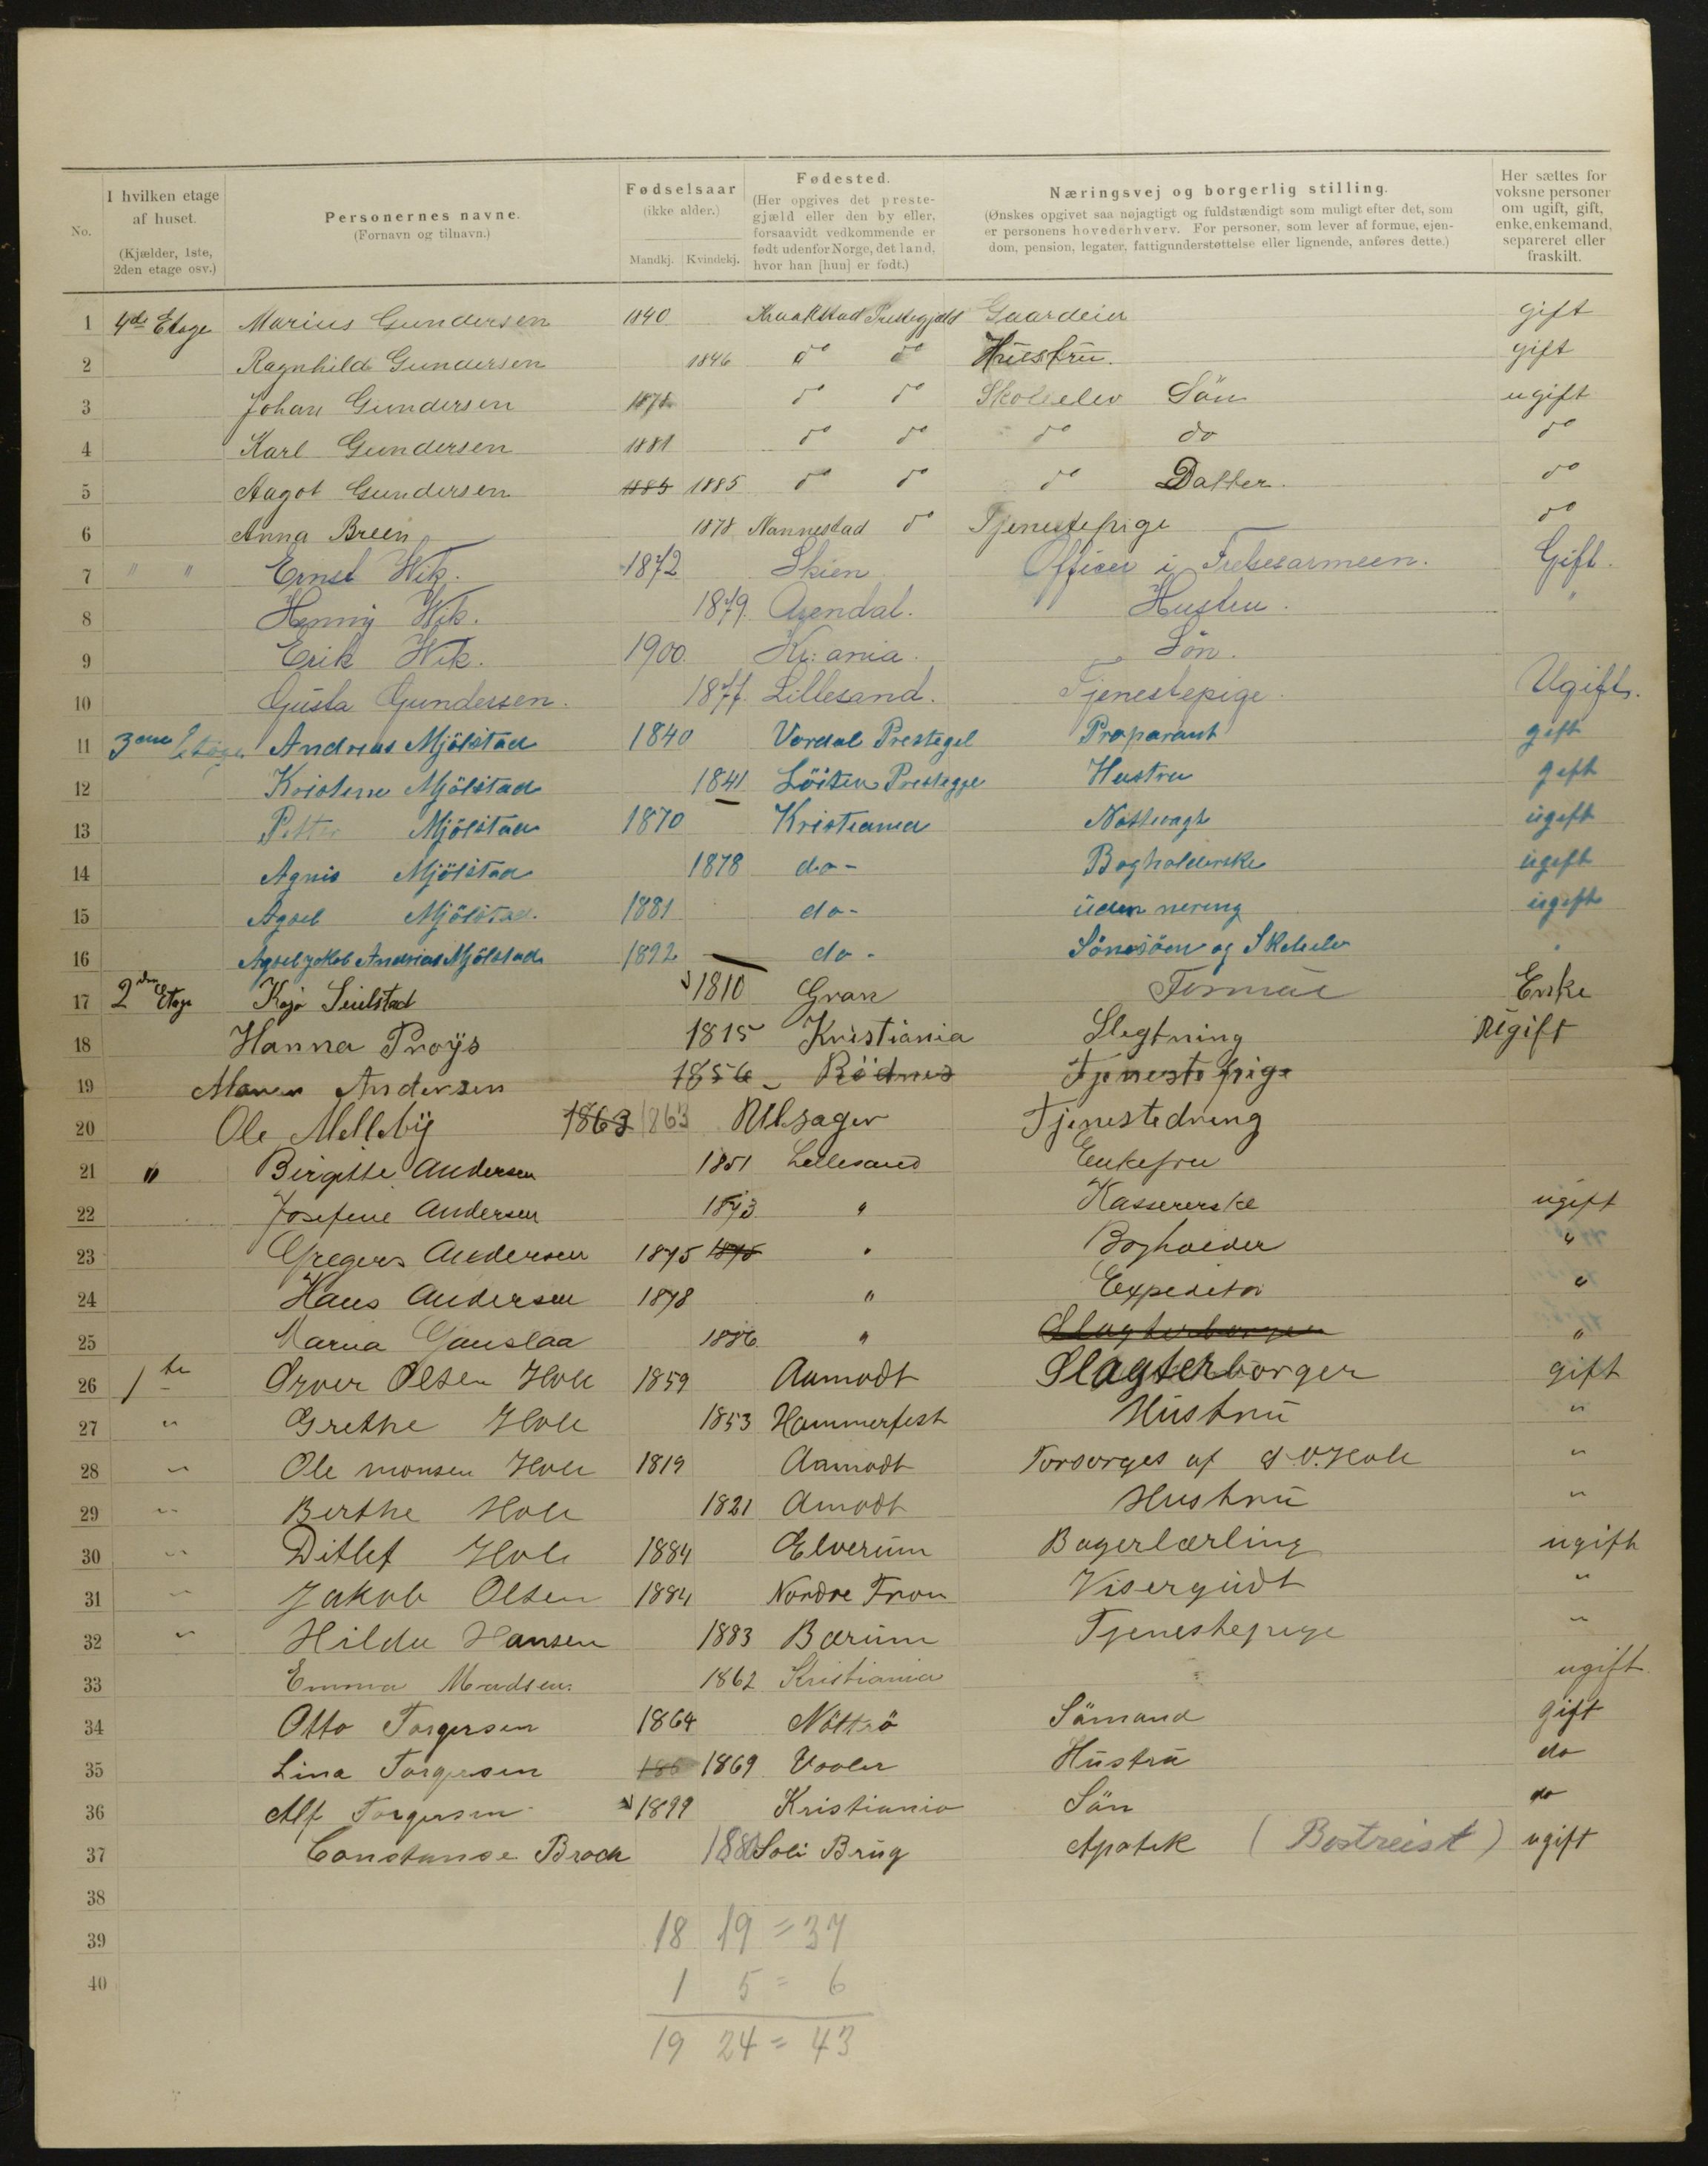 No.
I hvilken etage af huset.
(Kjælder, 1ste, 2den etage osv.)
Personernes navne.
(Fornavn og tilnavn.)
Fødselsaar
(ikke alder.)
Mandkj. Kvindekj.
Fødested.
(Her opgives det prestegjæld eller den by eller, forsaavidt vedkommende er født udenfor Norge, det land, hvor han [hun] er født.)
Næringsvej og borgerlig stilling.
(Ønskes opgivet saa nøjagtigt og fuldstændigt som muligt efter det, som er personens hovederhverv. For personer, som lever af formue, ejendom, pension, legater, fattigunderstøttelse eller lignende, anføres dette.)
Her sættes for voksne personer om ugift, gift, enke, enkemand, separeret eller fraskilt.
1 4de Etage Marius Gundersen 1840 Kraakstad Prestegjæld Gaardeier gift
2 Ragnhild Gundersen 1846 do do Hustru. gift
3 Johan Gundersen 1878 do do Skoleelev Sön ugift
4 Karl Gundersen 1881 do do do do do
5 Aagot Gundersen 1885 1885 do do do Datter. do
6 Anna Breen 1878 Nannestad do Tjenestepige do
7 " " Ernst Wik. 1872 Skien Officer i Frelsesarmeen. Gift.
8 Henny Wik. 1879. Arendal. Hustru. "
9 Erik Wik. 1900. Kr:ania. Sön.
10 Gusta Gundersen. 1877. Lillesand. Tjenestepige. Ugift.
11 3die Etage Andreas Mjölstad 1840 Vordal Prestegel Præparant gift
12 Kristene Mjölstad 1841 Löiten Prestegje Hustru gift
13 Petter Mjölstad 1870 Kristiania Nattvagt ugift
14 Agnis Mjölstad 1878 do- Bogholderske ugift
15 Agsel Mjölstad. 1881 do- uden nering ugift
16 Agsel Jakob Andreas Mjölstad 1892 do- Sönesöen og Skolelv "
17 2den Etage Kaja Seielstad 1810 Gran Formue Enke
18 Hanna Pröys 1815 Kristiania Slegtning Ugift
19 Maren Andersen 1856 Rödnes Tjenestepige
20 Ole Melleby 1863 1863 Ulsager Tjenestedreng
21 " Birgitte Andersen 1851 Lillesand Enkefru
22 Josefine Andersen 1873 " Kassererske ugift
23 Gregers Andersen 1875 1875 " Bogholder "
24 Hans Andersen 1878 " Expeditör "
25 Maria Gauslaa 1886 " Slagterborger "
26 1ste Syver Olsen Hole 1859 Aamodt Slagterborger gift
27 " Grethe Hole 1853 Hammerfest Hustru "
28 " Ole monsen Hole 1819 Aamodt Forsorges af S.O. Hole "
29 " Berthe Hole 1821 Amodt Hustru "
30 " Ditlef Hole 1884 Elverum Bagerlærling ugift
31 " Jakob Olsen 1884 Nordre Fron Visergudt "
32 " Hilda Hansen 1883 Bærum Tjenestepige "
33 Emma Madsen. 1862 Kristiania " ugift.
34 Otto Torgersen 1864 Nötterö Sömand gift
35 Lina Torgersen 186 1869 Vaaler Hustru do
36 Alf Torgersen 1899 Kristiania Sön do
37 Constance Brock 1880 Soli Brug Apotek (Bortreist) ugift
38
39
40
18 19 = 37
1 5 = 6
19 24 = 43